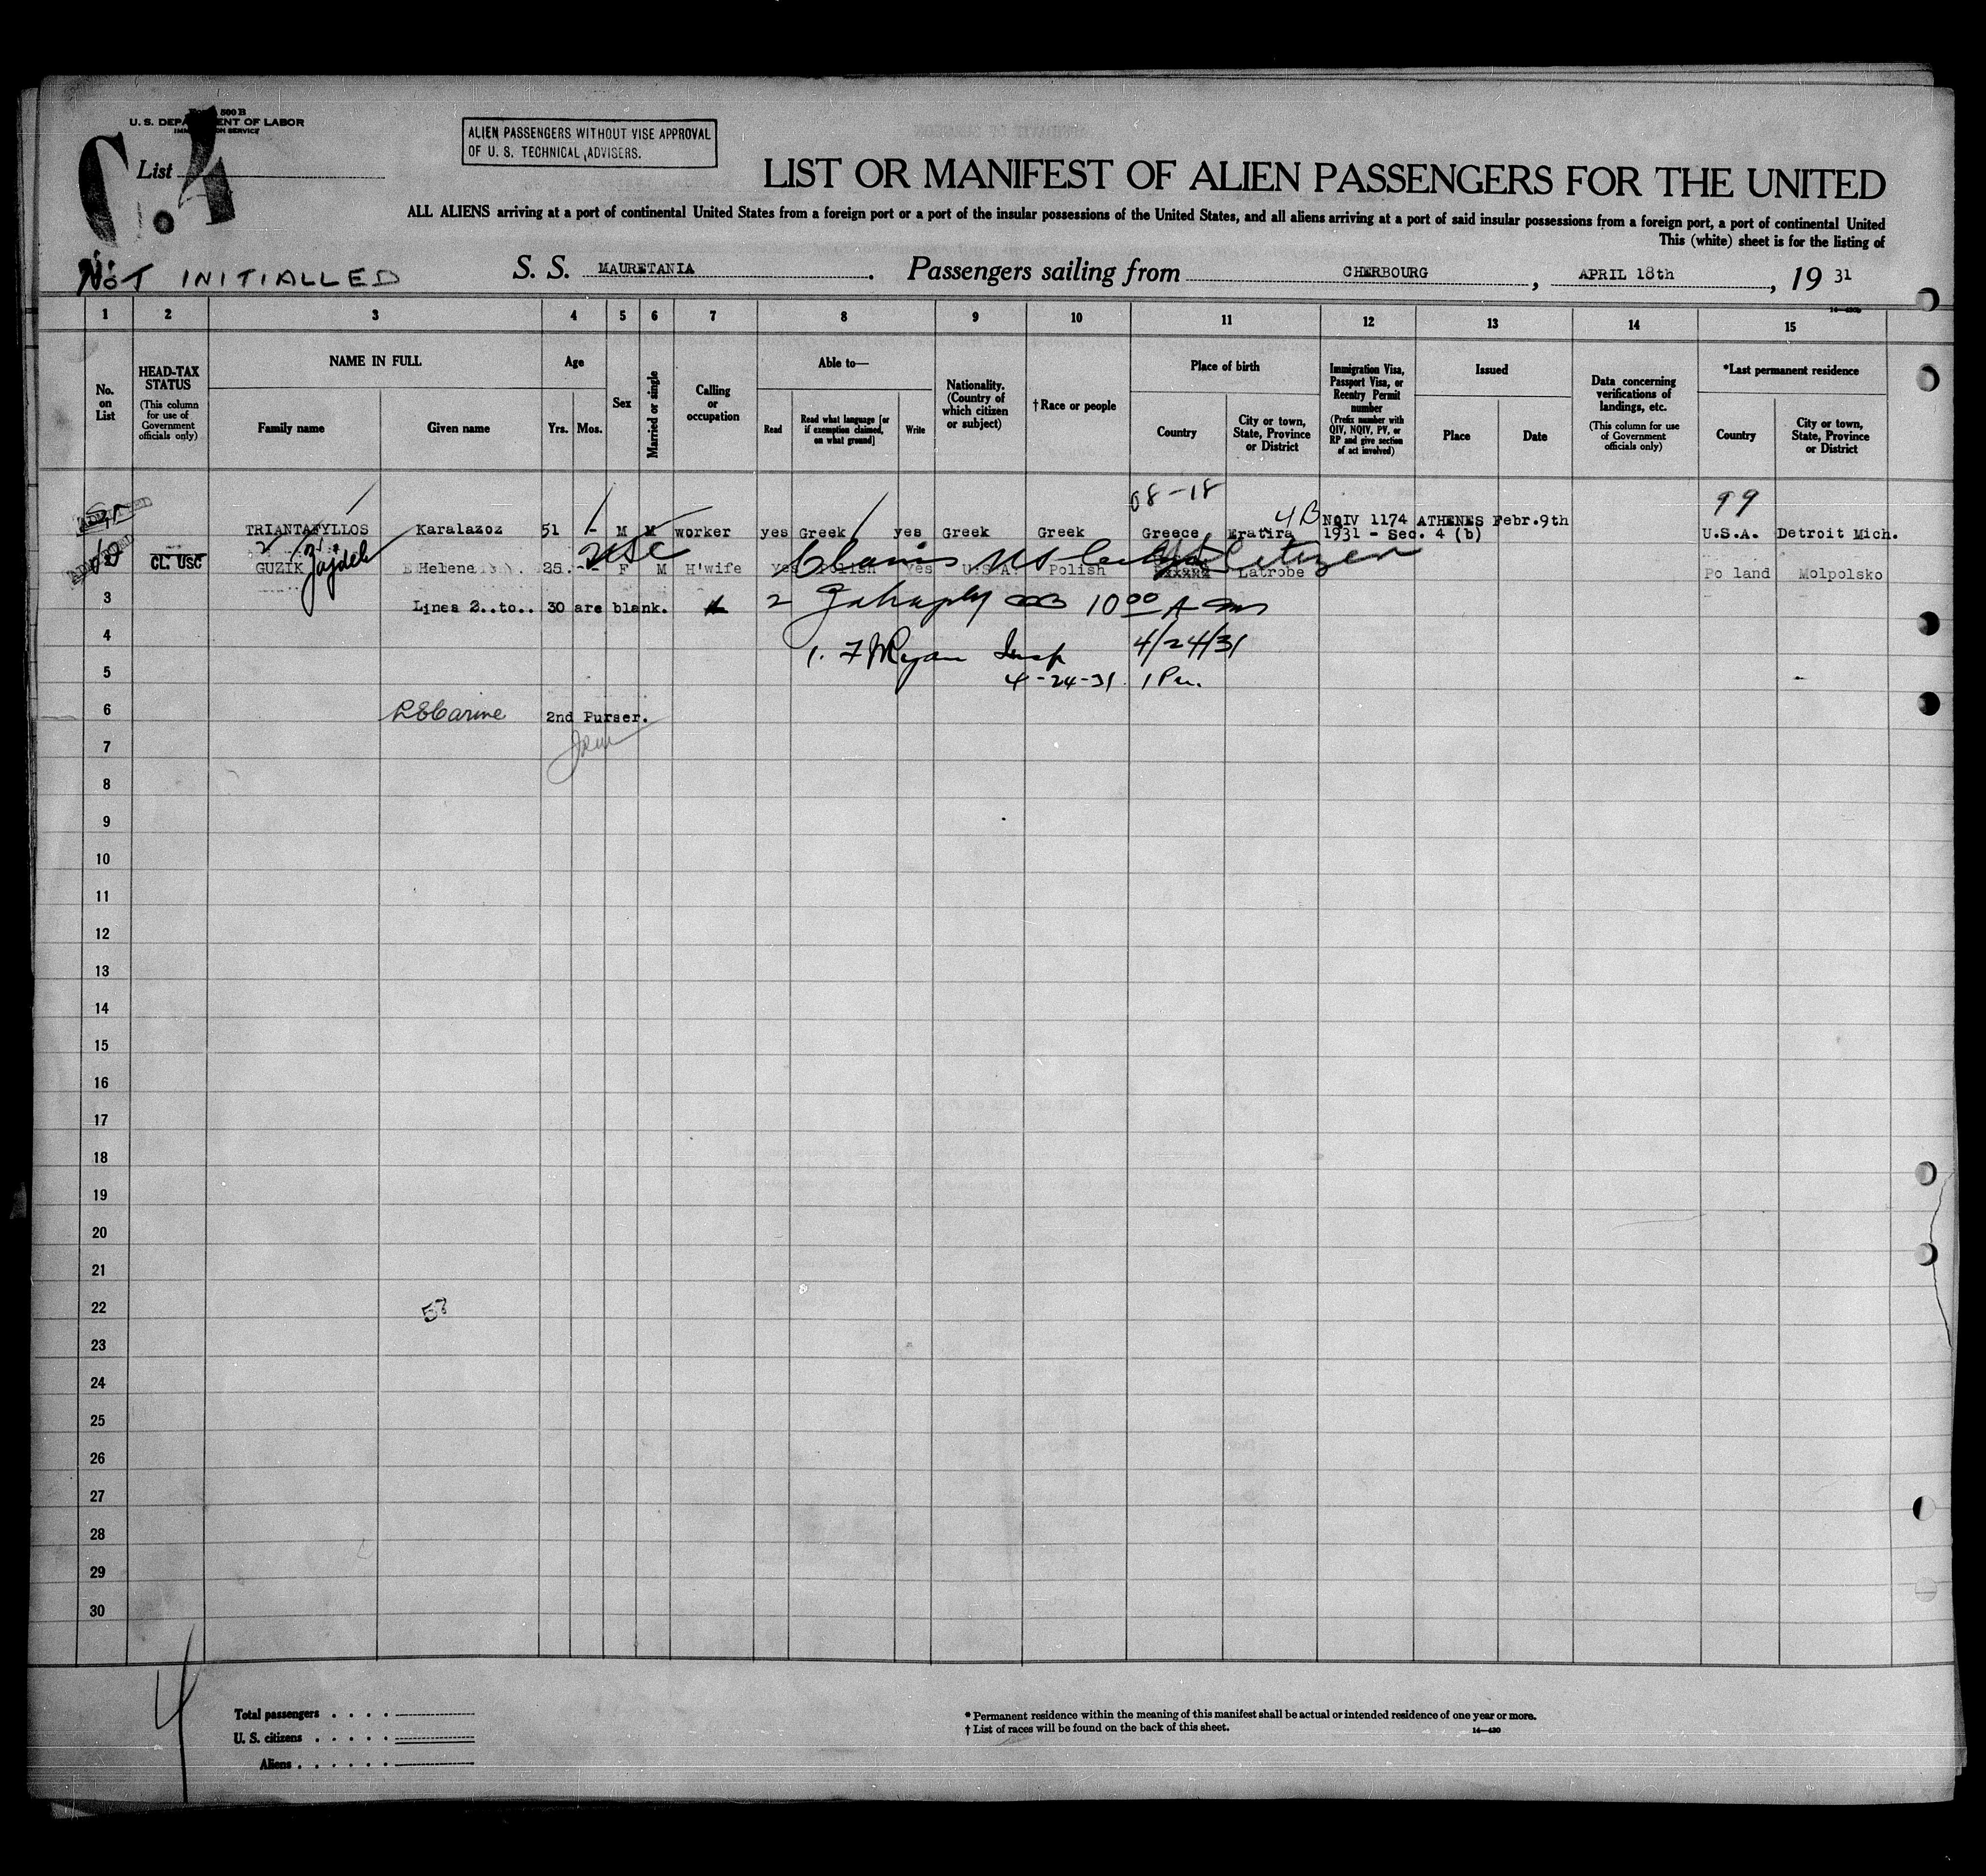 500 B
U. S. DEPARTMENT OF LABOR
IMMIGRATION SERVICE
List
ALIEN PASSENGERS WITHOUT VISE APPROVAL
OF U. S. TECHNICAL ADVISERS.
LIST OR MANIFEST OF ALIEN PASSENGERS FOR THE UNITED
ALL ALIENS arriving at a port of continental United States from a foreign port or a port of the insular possessions of the United States, and all aliens arriving at a port of said insular possessions from a foreign port, a port of continental United
This (white) sheet is for the listing of
NOT INITIALLED
S. S. MAURETANIA. Passengers sailing from CHERBOURG, APRIL 18th, 19 31
1 2 3 4 5 6 7 8 9 10 11 12 13 14 15
No. on List
HEAD-TAX STATUS (This column for use of Government officials only)
NAME IN FULL
Family name
Given name
Age
Yrs. Mos.
Sex
Married or single
Calling or occupation
Able to—
Read
Read what language [or if exemption claimed, on what ground]
Write
Nationality. (Country of which citizen or subject)
† Race or people
Place of birth
Country
City or town, State, Province or District
Immigration Visa, Passport Visa, or Reentry Permit number (Prefix number with QIV, NQIV, PV, or RP and give section of act involved)
Issued
Place
Date
Data concerning verifications of landings, etc. (This column for use of Government officials only)
*Last permanent residence
Country
City or town, State, Province or District
08-18
99
4B
ADMITTED
TRIANTAFYLLOS Karalazoz 51 - M M worker yes Greek yes Greek Greek Greece Eratira NQIV 1174 ATHENES Febr.9th
1931 - Sec. 4 (b) U.S.A. Detroit Mich.
USC
ADMITTED
CL. USC GUZIK Zajdel Helene 25 -- F M H'wife yes Polish yes U.S.A. Polish Latrobe Poland Molpolsko
Claims US Citizen
3 Lines 2..to.. 30 are blank.
10 00 A
4
4/24/31
1. Ryan Insp
5 4-24-31 1 Pm.
6 2nd Purser.
7
8
9
10
11
12
13
14
15
16
17
18
19
20
21
22
23
24
25
26
27
28
29
30
4
Total passengers
U. S. citizens
Aliens
* Permanent residence within the meaning of this manifest shall be actual or intended residence of one year or more.
† List of races will be found on the back of this sheet.
14—430